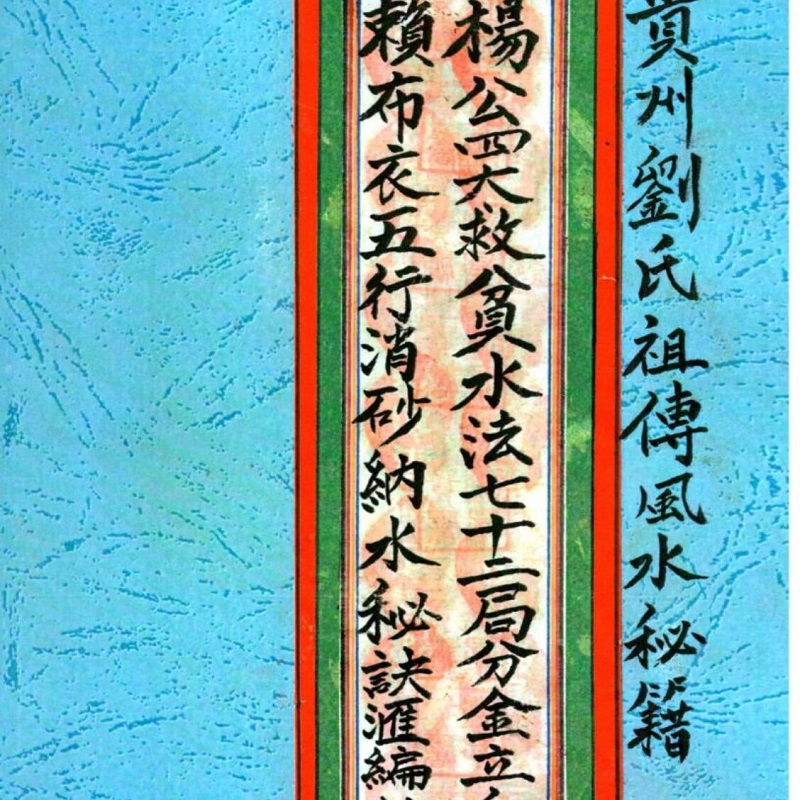 貴州劉氏祖傳風水秘籍
楊公四大救貧水法七十二局分金立
賴布衣五行消砂納水秘訣滙編